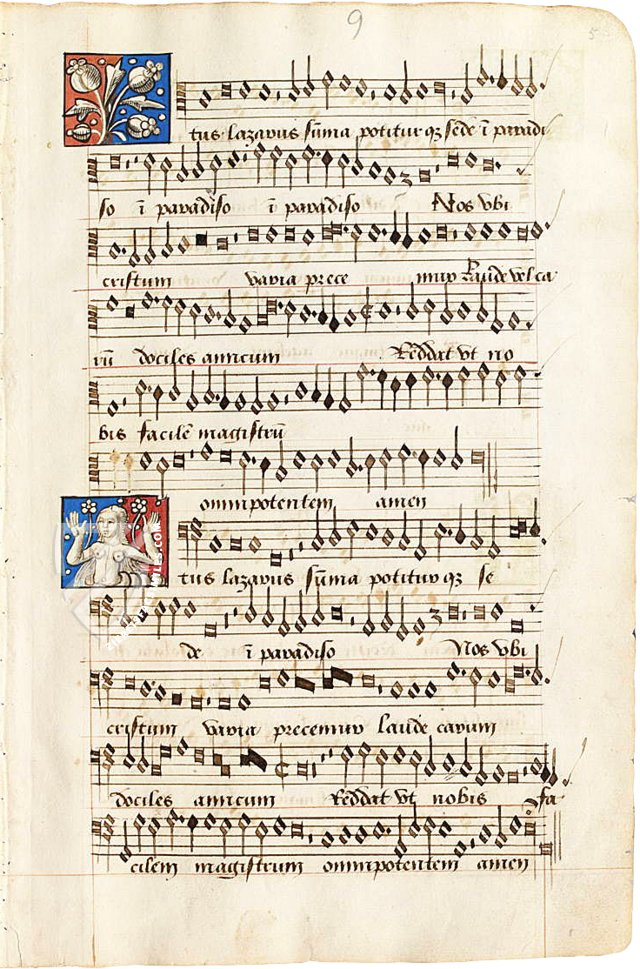 9
tus lazarus suma potitur qz sede i paradi
so i paradiso i paradiso Nos vbi
cristum varia prece mur Laude vel ca
rū dociles amicum Reddat vt no
bis facilē magistrū
omnipotentem amen
tus lazarus sūma potitur qz se
de i paradiso Nos vbi
cristum varia precemur laude carum
dociles amicum Reddat vt nobis fa
cilem magistrum omnipotentem amen